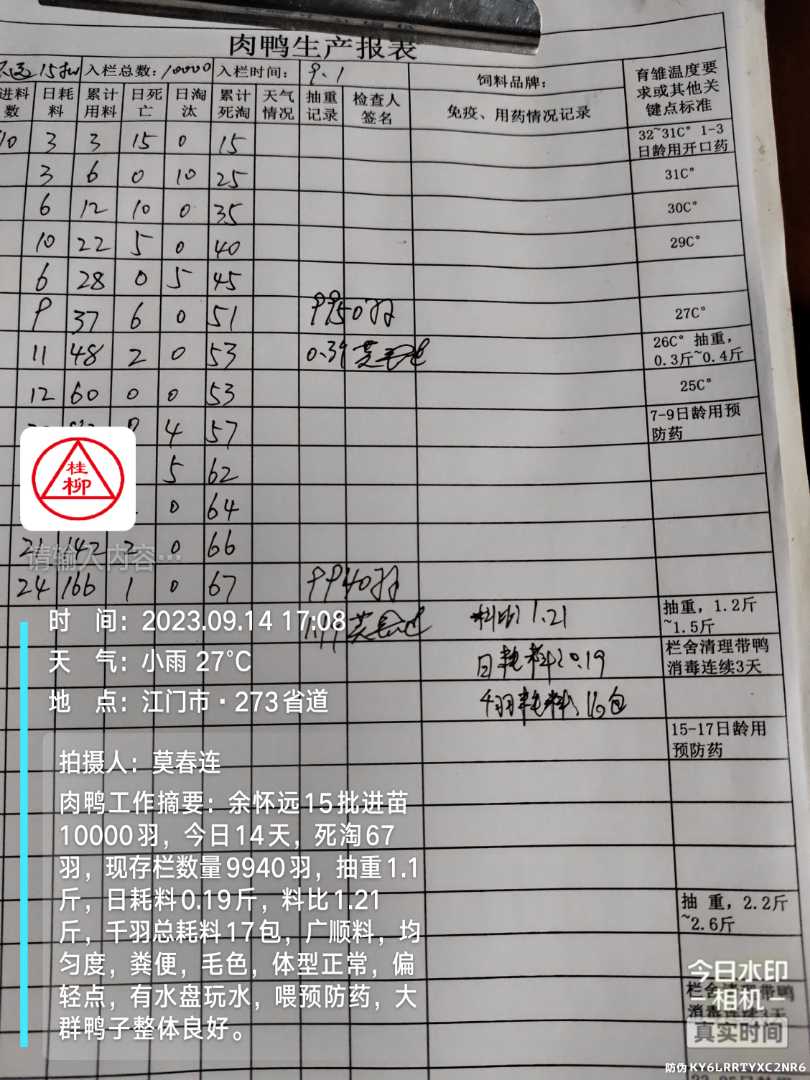 肉鸭生产报表
15批 入栏总数: 10000 入栏时间: 9.1 饲料品牌: 育雏温度要求或其他关键点标准
进料数 日耗料 累计用料 日死亡 日淘汰 累计死淘 天气情况 抽重记录 检查人签名 免疫、用药情况记录
10 3 3 15 0 15 32~31C° 1-3日龄用开口药
3 6 0 10 25 31C°
6 12 10 0 35 30C°
10 22 5 0 40 29C°
6 28 0 5 45
9 37 6 0 51 9950羽 27C°
11 48 2 0 53 0.39 26C° 抽重,0.3斤~0.4斤
12 60 0 0 53 25C°
4 57 7-9日龄用预防药
5 62
0 64
21 142 2 0 66
24 166 1 0 67 9940羽
料比 1.21 抽重，1.2斤~1.5斤
日耗料 0.19 栏舍清理带鸭消毒连续3天
千羽耗料
15-17日龄用预防药
抽 重，2.2斤~2.6斤
桂柳
请输入内容…
时 间: 2023.09.14 17:08
天 气: 小雨 27℃
地 点: 江门市·273省道
拍摄人: 莫春连
肉鸭工作摘要: 余怀远15批进苗
10000羽，今日14天，死淘67
羽，现存栏数量9940羽，抽重1.1
斤，日耗料0.19斤，料比1.21
斤，千羽总耗料17包，广顺料，均
匀度，粪便，毛色，体型正常，偏
轻点，有水盘玩水，喂预防药，大
群鸭子整体良好。
今日水印
相机
真实时间
防伪 KY6LRRTYXC2NR6